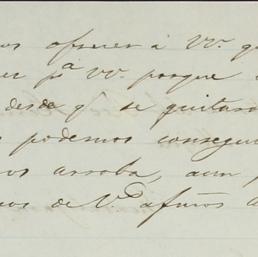 os ofrecer á VV. q
er pª VV. porque
desde q̃ se quitaro
podemos consegu
os arroba, aun p
os de V. afmos